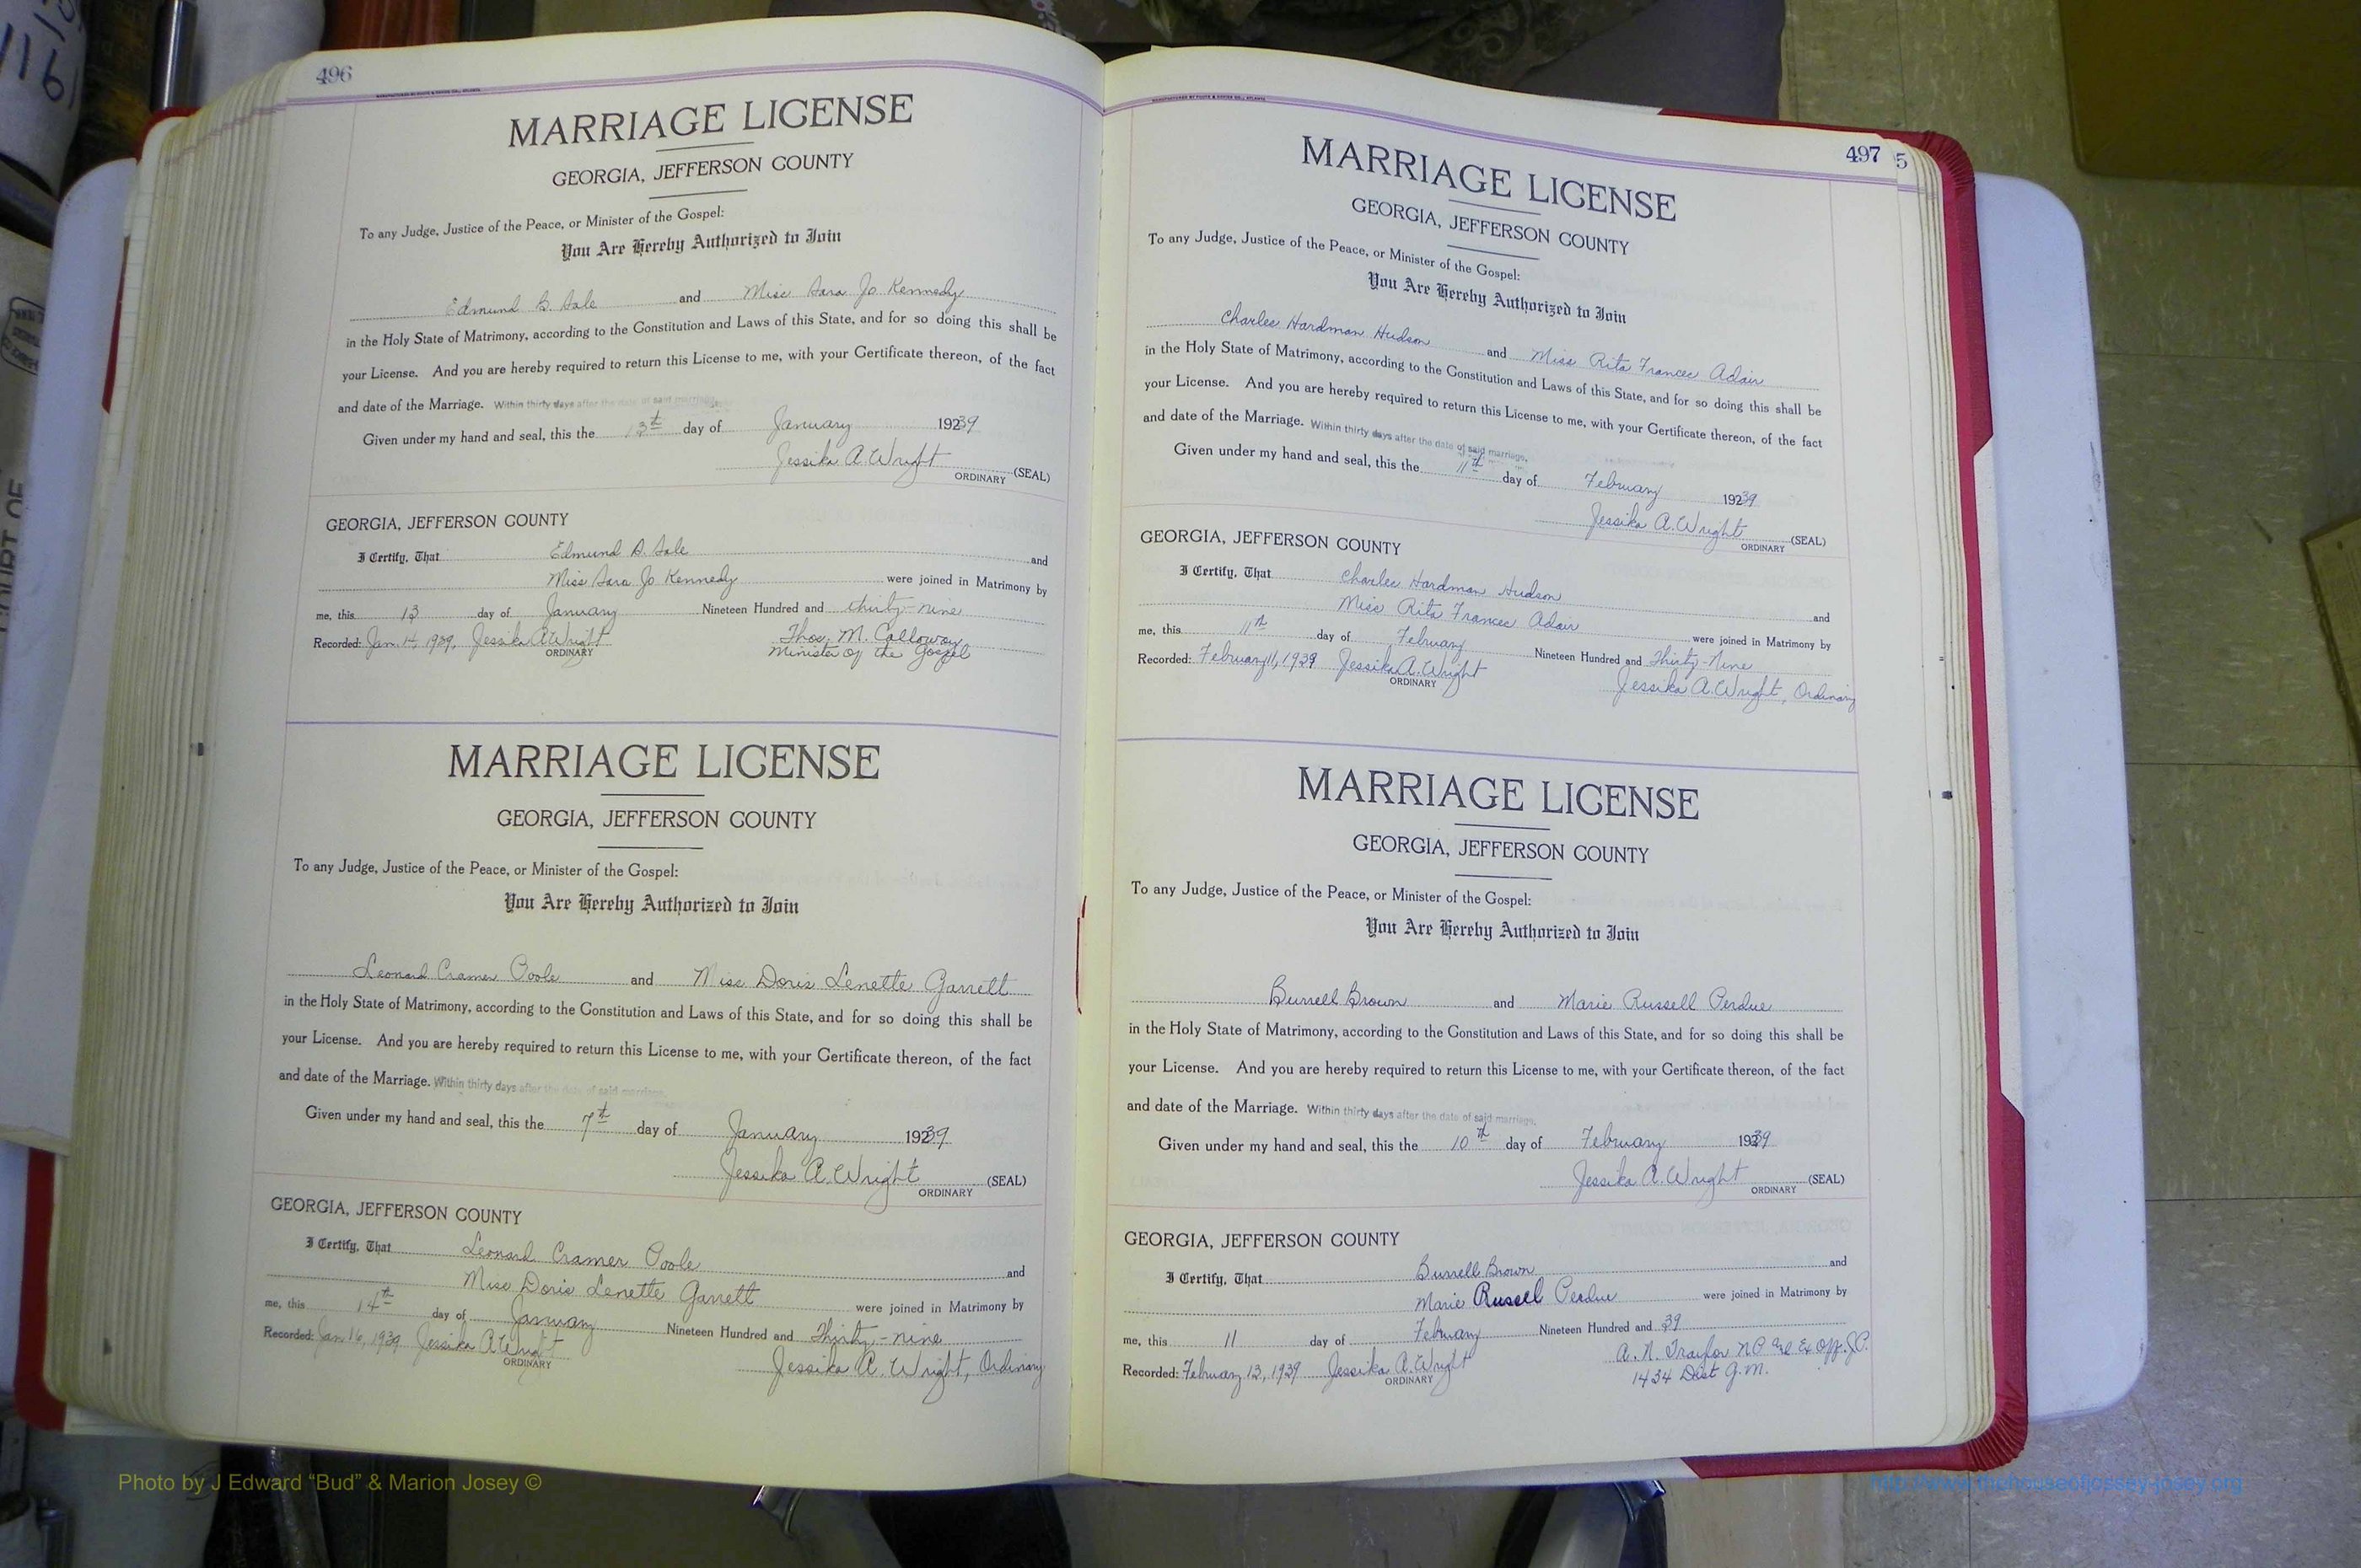 496
MARRIAGE LICENSE
GEORGIA, JEFFERSON COUNTY
To any Judge, Justice of the Peace, or Minister of the Gospel:
You Are Hereby Authorized to Join
Edmund B. Sale and Miss Sara Jo Kennedy
in the Holy State of Matrimony, according to the Constitution and Laws of this State, and for so doing this shall be
your License. And you are hereby required to return this License to me, with your Certificate thereon, of the fact
and date of the Marriage. Within thirty days after the date of said marriage.
Given under my hand and seal, this the 13th day of January 19239
Jessika A. Wright (SEAL)
ORDINARY
GEORGIA, JEFFERSON COUNTY
I Certify, That Edmund B. Sale and
Miss Sara Jo Kennedy were joined in Matrimony by
me, this 13 day of January Nineteen Hundred and thirty-nine
Recorded: Jan. 14, 1939, Jessika A. Wright Thos. M. Calloway
ORDINARY Minister of the Gospel
MARRIAGE LICENSE
GEORGIA, JEFFERSON COUNTY
To any Judge, Justice of the Peace, or Minister of the Gospel:
You Are Hereby Authorized to Join
Leonard Cramer Poole and Miss Doris Lenette Garrett
in the Holy State of Matrimony, according to the Constitution and Laws of this State, and for so doing this shall be
your License. And you are hereby required to return this License to me, with your Certificate thereon, of the fact
and date of the Marriage. Within thirty days after the date of said marriage.
Given under my hand and seal, this the 7th day of January 19239
Jessika A. Wright (SEAL)
ORDINARY
GEORGIA, JEFFERSON COUNTY
I Certify, That Leonard Cramer Poole and
Miss Doris Lenette Garrett were joined in Matrimony by
me, this 14th day of January Nineteen Hundred and Thirty-nine
Recorded: Jan 16, 1939 Jessika A. Wright
ORDINARY Jessika A. Wright, Ordinary
497
5
MARRIAGE LICENSE
GEORGIA, JEFFERSON COUNTY
To any Judge, Justice of the Peace, or Minister of the Gospel:
You Are Hereby Authorized to Join
Charles Hardman Hudson and Miss Rita Frances Adair
in the Holy State of Matrimony, according to the Constitution and Laws of this State, and for so doing this shall be
your License. And you are hereby required to return this License to me, with your Certificate thereon, of the fact
and date of the Marriage. Within thirty days after the date of said marriage.
Given under my hand and seal, this the 11th day of February 19239
Jessika A. Wright (SEAL)
ORDINARY
GEORGIA, JEFFERSON COUNTY
I Certify, That Charles Hardman Hudson and
Miss Rita Frances Adair were joined in Matrimony by
me, this 11th day of February Nineteen Hundred and Thirty-Nine
Recorded: February 11, 1939 Jessika A. Wright
ORDINARY Jessika A. Wright, Ordinary
MARRIAGE LICENSE
GEORGIA, JEFFERSON COUNTY
To any Judge, Justice of the Peace, or Minister of the Gospel:
You Are Hereby Authorized to Join
Burrell Brown and Marie Russell Perdue
in the Holy State of Matrimony, according to the Constitution and Laws of this State, and for so doing this shall be
your License. And you are hereby required to return this License to me, with your Certificate thereon, of the fact
and date of the Marriage. Within thirty days after the date of said marriage.
Given under my hand and seal, this the 10th day of February 19239
Jessika A. Wright (SEAL)
ORDINARY
GEORGIA, JEFFERSON COUNTY
I Certify, That Burrell Brown and
Marie Russel Perdue were joined in Matrimony by
me, this 11 day of February Nineteen Hundred and 39
Recorded: February 13, 1939 Jessika A. Wright A. N. Traylor N.P. & Ex Off. J.P.
ORDINARY 1434 Dist G.M.
Photo by J Edward “Bud” & Marion Josey ©
http://www.thehouseofjossey-josey.org